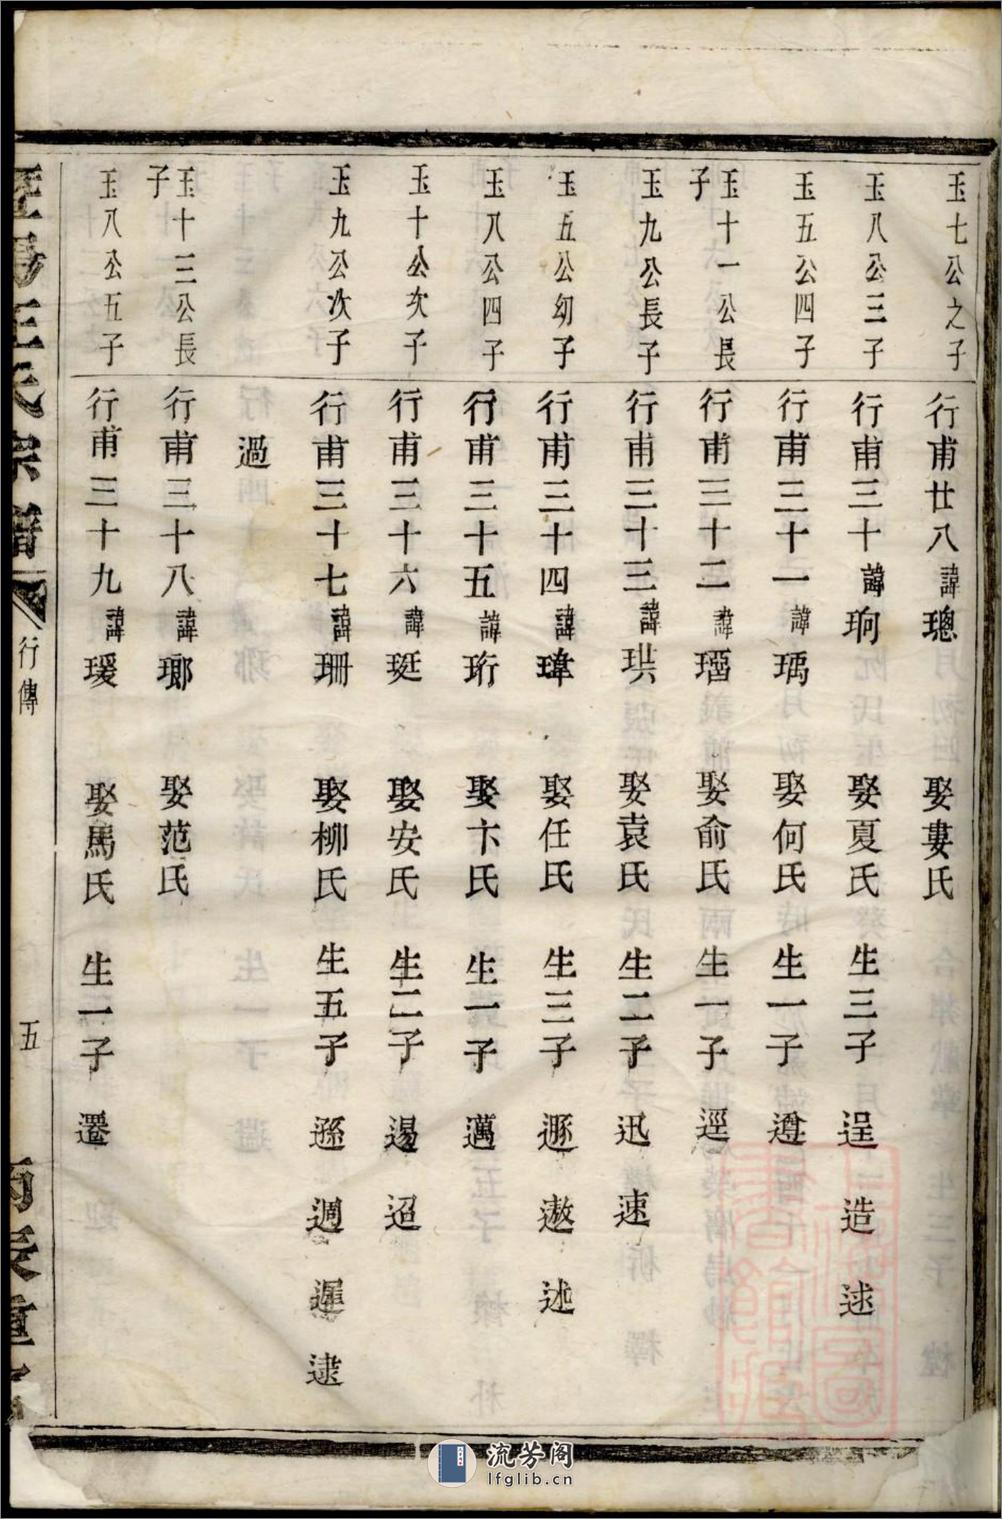 玉七公之子 行甫廿八諱璁 娶婁氏
玉八公三子 行甫三十諱珦 娶夏氏 生三子 逞 造 逑
玉五公四子 行甫三十一諱瑀 娶何氏 生一子 遵
玉十一公長子 行甫三十二諱 娶俞氏 生一子 逕
玉九公長子 行甫三十三諱珙 娶袁氏 生二子 迅 速
玉五公幼子 行甫三十四諱瑋 娶任氏 生三子 遨 述
玉八公四子 行甫三十五諱珩 娶卞氏 生一子 邁
玉十公次子 行甫三十六諱珽 娶安氏 生二子 遏 迢
玉九公次子 行甫三十七諱珊 娶柳氏 生五子 遜 週 遲 逮
過
玉十三公長子 行甫三十八諱瑯 娶范氏
玉八公五子 行甫三十九諱瑗 娶馬氏 生一子 遷
王氏宗譜 行傳 五 丙辰重
流芳阁
lfglib.cn